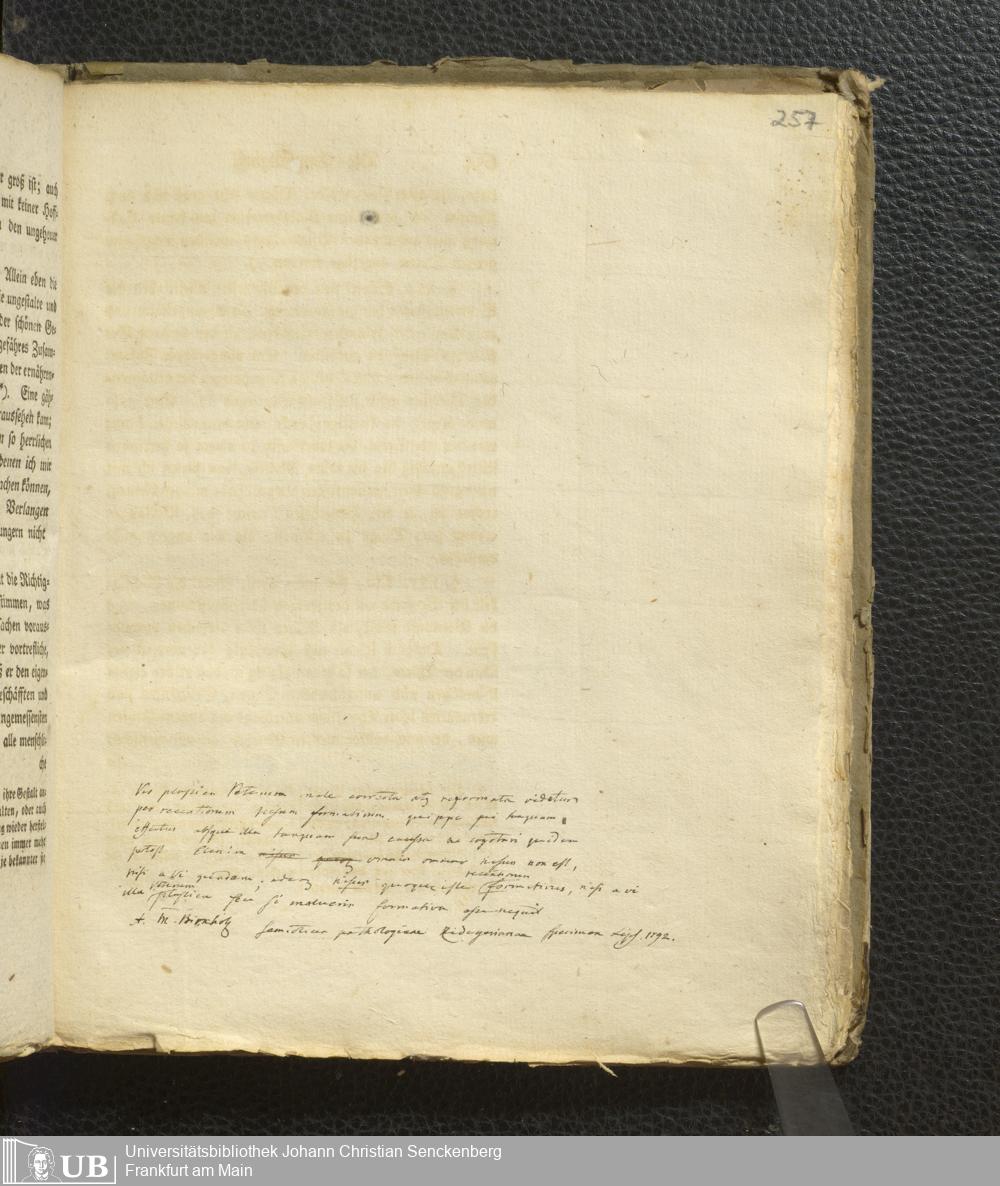 257
r groß ist; auch
mit keiner Hoff-
den ungeheuer
Allein eben die
e ungestalte und
der schönen Ge-
gefähres Zusam-
en der ernähren-
*). Eine gäh-
raussehen kam;
n so herrlichen
denen ich mir
achen können,
Verlangen
ungern nicht
t die Richtig-
stimmen, was
achen voraus-
er vortrefliche,
ß er den eigen-
eschäfften und
ngemessensten
alle menschli-
che
ihre Gestalt an-
alten, oder auch
g wieder herstel-
nen immer mehr
je bekannter je
Vis plastica Veterum male correcta atq reformata videtur
per recentiorum nisum formativum, quippe qui tanquam
effectus absque illa tanquam sua caussa ne cogitari quidem
potest. Etenim omnis nisus non est,
nisi a vi quadam; adeoq nisus quoque iste recentiorum formativus, nisi a vi
illa veterum plastica seu si malueris formativa esse nequit
A. M. Birkholz
Semioticae pathologicae Rüdigerianae specimen Lips. 1792.
UB
Universitätsbibliothek Johann Christian Senckenberg
Frankfurt am Main